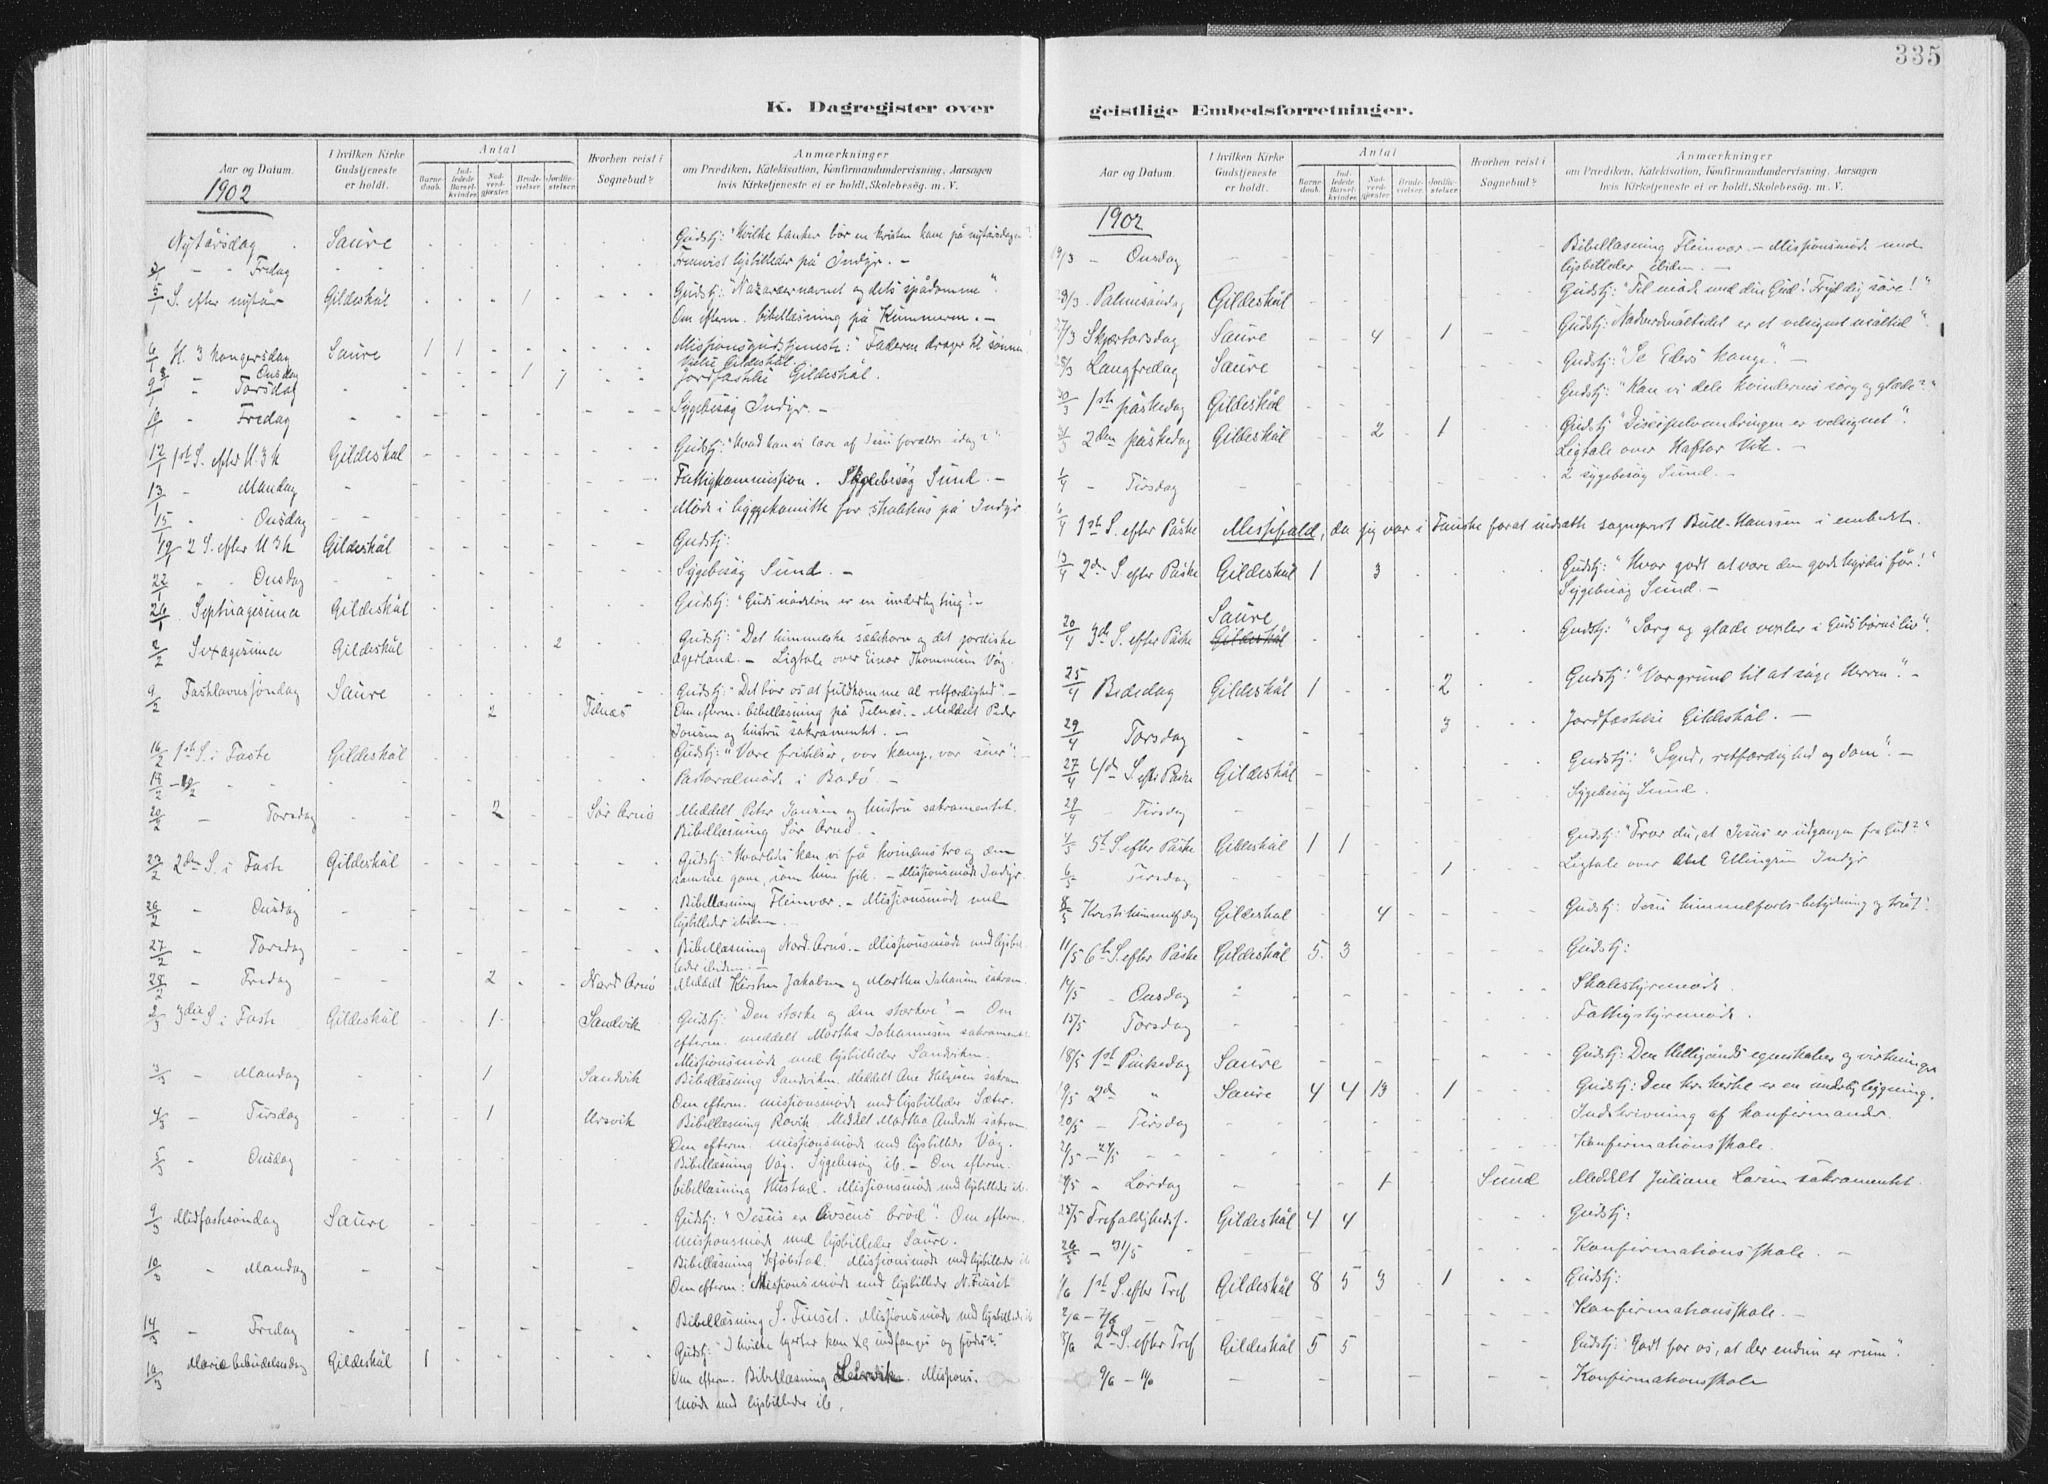 335
K. Dagregister over
geistlige Embedsforretninger.
Aar og Datum.
I hvilken Kirke Gudstjeneste er holdt.
Antal
Barnedaab.
Indledede Barselkvinder.
Nadverdgjæster.
Brudevielser.
Jordfæstelser.
Hvorhen reist i Sognebud?
Anmærkninger
om Prædiken, Katekisation, Konfirmandundervisning, Aarsagen
hvis Kirketjeneste ei er holdt, Skolebesøg. m. V.
1902
Nytårsdag Saure Gudstj: "Hvilke tanker bør en kristen have på nytårsdagen?
3/1 Fredag Fremvist lysbilleder på Indyr. —
5/1 S. efter nytår Gildeskål 1 Gudstj: "Nazaræernavnet og dets spådomme".
Om efterm. bibellæsning på
6/1 H. 3 kongersdag Saure 1 1 Missionsgudstjeneste: "Faderen drager til sønnen
8/1 Onsdag 1 Vielse Gildeskål.
9/1 Torsdag 1 Jordfæstelse Gildeskål.
10/1 Fredag Sygebesøg Indyr. —
12/1 1ste S. efter H 3 k Gildeskål Gudstj: "Hvad kan vi lære af Jesu forældre idag?"
13/1 Mandag Fattigkommission. Sygebesøg Sund. —
15/1 Onsdag Møde i byggekomitte for skolehus på Indyr
19/1 2 S. efter H 3 k Gildeskål Gudstj:
22/1 Onsdag Sygebesøg Sund. —
26/1 Septuagesima Gildeskål Gudstj: "Guds nådeløn er en underlig ting". —
2/2 Sexagesima Gildeskål 2 Gudstj: "Det himmelske sædekorn og det jordiske
agerland. — Ligtale over Einar Thommesen Våg.
9/2 Fastelavnssøndag Saure Gudstj: "Det bør os at fuldkomme al retfærdighed". —
2 Telnæs Om efterm. bibellæsning på Telnæs. — Meddelt Peder
Jensen og hustru sakramentet. —
16/2 1ste S. i Faste Gildeskål Gudstj: "Vore fristelser, vor kamp, vor seier". —
18/2 – 19/2 Pastoralmøde i Bodø —
20/2 Torsdag 2 Sør Arnø Meddelt Peter Jensen og hustru sakramentet.
Bibellæsning Sør Arnø. —
23/2 2den S. i Faste Gildeskål Gudstj: "Hvorledes kan vi få kvindens tro og den
samme gave, som hun fik. — Missionsmøde Indyr.
26/2 Onsdag Bibellæsning Fleinvær. — Missionsmøde med
lysbilleder ibiden.
27/2 Torsdag Bibellæsning Nord Arnø. — Missionsmøde med lysbil-
leder ibidem. —
28/2 Fredag 2 Nord Arnø Meddelt Kirsten Jakobsen og Marthea Johansen sakram.
2/3 3die S. i Faste Gildeskål 1 Sandvik Gudstj: "Den stærke og den stærkere" — Om
efterm. meddelt Martha Johannesen sakrament.
Missionsmøde med lysbilleder Sandviken.
3/3 Mandag 1 Sandvik Bibellæsning Sandviken. Meddelt Ane Helgesen sakram.
Om efterm. missionsmøde med lysbilleder Sæter.
4/3 Tirsdag 1 Arsvik Bibellæsning Rovik. Meddelt Martha Andersdt sakram.
Om efterm. missionsmøde med lysbilleder Våg.
5/3 Onsdag Bibellæsning Våg. Sygebesøg ib. — Om efterm.
bibellæsning Hustad. Missionsmøde med lysbilleder ib.
9/3 Midfastesøndag Saure Gudstj: "Jesus er livsens brød". Om efterm.
missionsmøde med lysbilleder Saure.
10/3 Mandag Bibellæsning Kjøbstad. Missionsmøde med lysbilleder ib
Om efterm: Missionsmøde med lysbilleder N. Finset
14/3 Fredag Bibellæsning S. Finset. Missionsmøde med lysbilleder ib
16/3 Mariæ bebudelsesdag Gildeskål 1 Gudstj: "I hvilke hjerter kan undfanges og fødes?"
Om efterm. Bibellæsning Leirvik. Missions-
møde med lysbilleder ib.
Aar og Datum.
I hvilken Kirke Gudstjeneste er holdt.
Antal
Barnedaab.
Indledede Barselkvinder.
Nadverdgjæster.
Brudevielser.
Jordfæstelser.
Hvorhen reist i Sognebud?
Anmærkninger
om Prædiken, Katekisation, Konfirmandundervisning, Aarsagen
hvis Kirketjeneste ei er holdt, Skolebesøg. m. V.
1902
19/3 Onsdag Bibellæsning Fleinvær. — Missionsmøde med
lysbilleder ibiden. —
23/3 Palmesøndag Gildeskål Gudstj: "Til møde med din Gud! Fryd dig såre!"
27/3 Skjærtorsdag Saure 4 1 Gudstj: Nadverdmåltidet er et velsignet måltid".
28/3 Langfredag Saure Gudstj: "Se Eders konge". —
30/3 1ste påskedag Gildeskål Gudstj: "Kan vi dele kvindernes sorg og glæde?"
31/3 2den påskedag Gildeskål 2 1 Gudstj "Discipelvandringen er velsignet".
Ligtale over Haftor Vik. —
1/4 Tirsdag 2 sygebesøg Sund. —
6/4 1ste S. efter Påske Messefald, da jeg var i Fauske forat indsætte sogneprest Bull-Hanssen i embedet.
13/4 2den S. efter Påske Gildeskål 1 3 Gudstj: "Hvor godt at være den gode hyrdes får!"
Sygebesøg Sund. —
Saure
20/4 3die S. efter Påske Gildeskål Gudstj: "Sorg og glæde vexler i Guds børns liv".
25/4 Bededag Gildeskål 1 2 Gudstj: "Vor grund til at søge Herren". —
29/4 Torsdag 3 Jordfæstelse Gildeskål. —
27/4 4de S. efter Påske Gildeskål Gudstj: "Synd, retfærdighed og dom". —
29/4 Tirsdag Sygebesøg Sund.
4/5 5te S. efter Påske Gildeskål 1 1 Gudstj: "Tror du, at Jesus er udgangen fra Gud?"
6/5 Tirsdag 1 Ligtale over Ellingsen Indyr
8/5 Kristi himmelf.dag Gildeskål 4 Gudstj: Jesu himmelfarts betydning og trøst.
11/5 6te S. efter Påske Gildeskål 5 3 Gudstj:
14/5 Onsdag Skolestyremøde.
15/5 Torsdag Fattigstyremøde.
18/5 1ste Pinsedag Saure Gudstj: Den Helligånds egenskaber og virkninger
19/5 2den " Saure 4 4 13 1 Gudstj: Den kr. kirke er en underlig bygning.
20/5 Tirsdag Indskrivning af konfirmander.
21/5 – 24/5 Konfirmationsskole.
24/5 Lørdag 1 Sund Meddelt Juliane Larsen sakramentet.
25/5 Trefoldighedsf. Gildeskål 4 4 Gudstj:
26/5 – 31/5 Konfirmationsskole. —
1/6 1ste S. efter Tref Gildeskål 8 5 3 1 Gudstj:
2/6 – 7/6 Konfirmationsskole. —
8/6 2den S. efter Tref Gildeskål 5 5 Gudstj: "Godt for os, at der endnu er rum".
9/6 – Konfirmationsskole